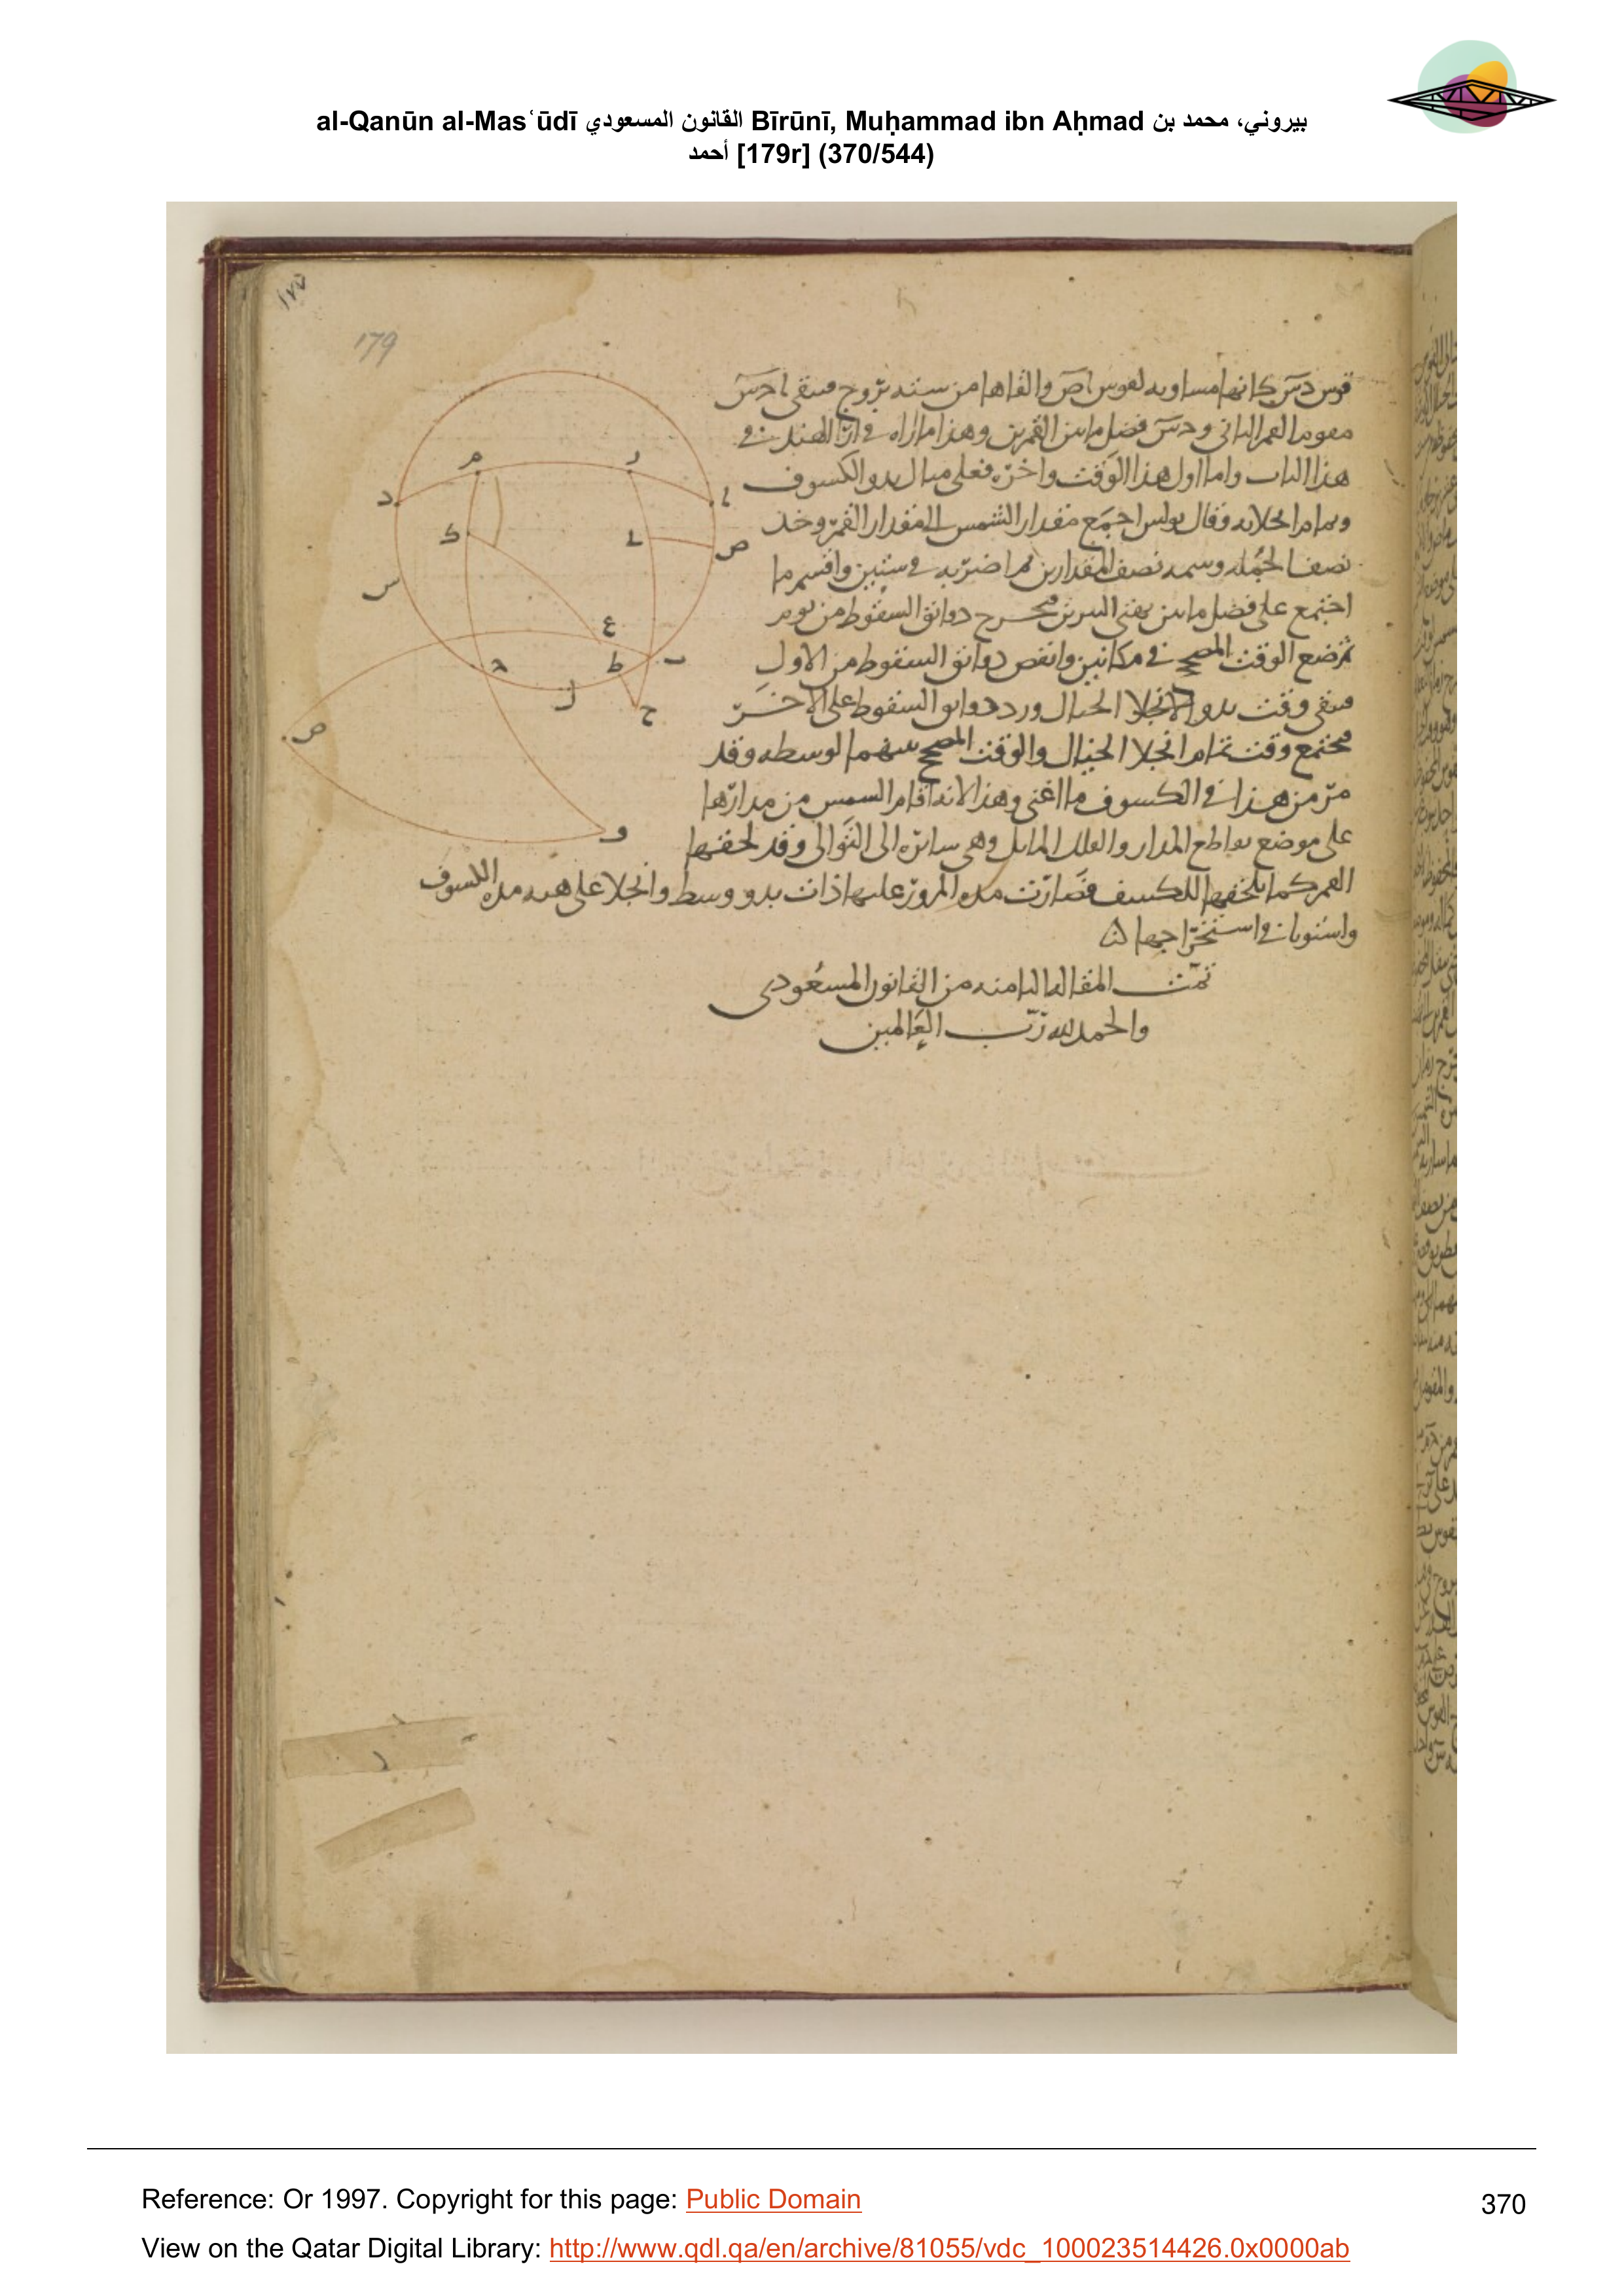 al-Qanūn al-Masʿūdī القانون المسعودي Bīrūnī, Muḥammad ibn Aḥmad بيروني، محمد بن
أحمد [179r] (370/544)
١٧٧
179
قوس دس كانها مساويه لقوس اص والقاها من سته بروج فيبقى ا دس
مقوما للقمر الثاني و دس فضل ما بين القمرين وهذا ما اراه في اراء الهند في
هذا الباب واما اول هذا الوقت واخره فعلى مثال بدو الكسوف
وتمام انجلائه وقال بولس اجمع مقدار الشمس الى مقدار القمر وخذ
نصف الجمله وسمه نصف المقدارين ثم اضربه في ستين واقسم ما
اجتمع على فضل ما بين بهتى النيرين فيخرج دوانق السقوط من يوم
ثم ضع الوقت المصحح في مكانين وانقص دوانق السقوط من الاول
فيبقى وقت بدو الانجلا الحيال وزد دوانق السقوط على الاخر
فيجتمع وقت تمام انجلا الحيال والوقت المصحح بينهما لوسطه وقد
مر من هذا في الكسوف ما اغنى وهذا لانه اقام الشمس من مدارها
على موضع تقاطع المدار والفلك المايل وهى سائره الى التوالى وقد لحقها
القمر كما يلحقها للكسف فصارت مده المرور عليها ذات بدو ووسط وانجلا على هيه مده الكسوف
واستويا في استخراجها
تمت المقاله الثامنه من القانون المسعودى
والحمد لله رب العالمين
د م ر ا
ك ل ص
س ع
ح ط ب
ل ح
ص
و
Reference: Or 1997. Copyright for this page: Public Domain
370
View on the Qatar Digital Library: http://www.qdl.qa/en/archive/81055/vdc_100023514426.0x0000ab